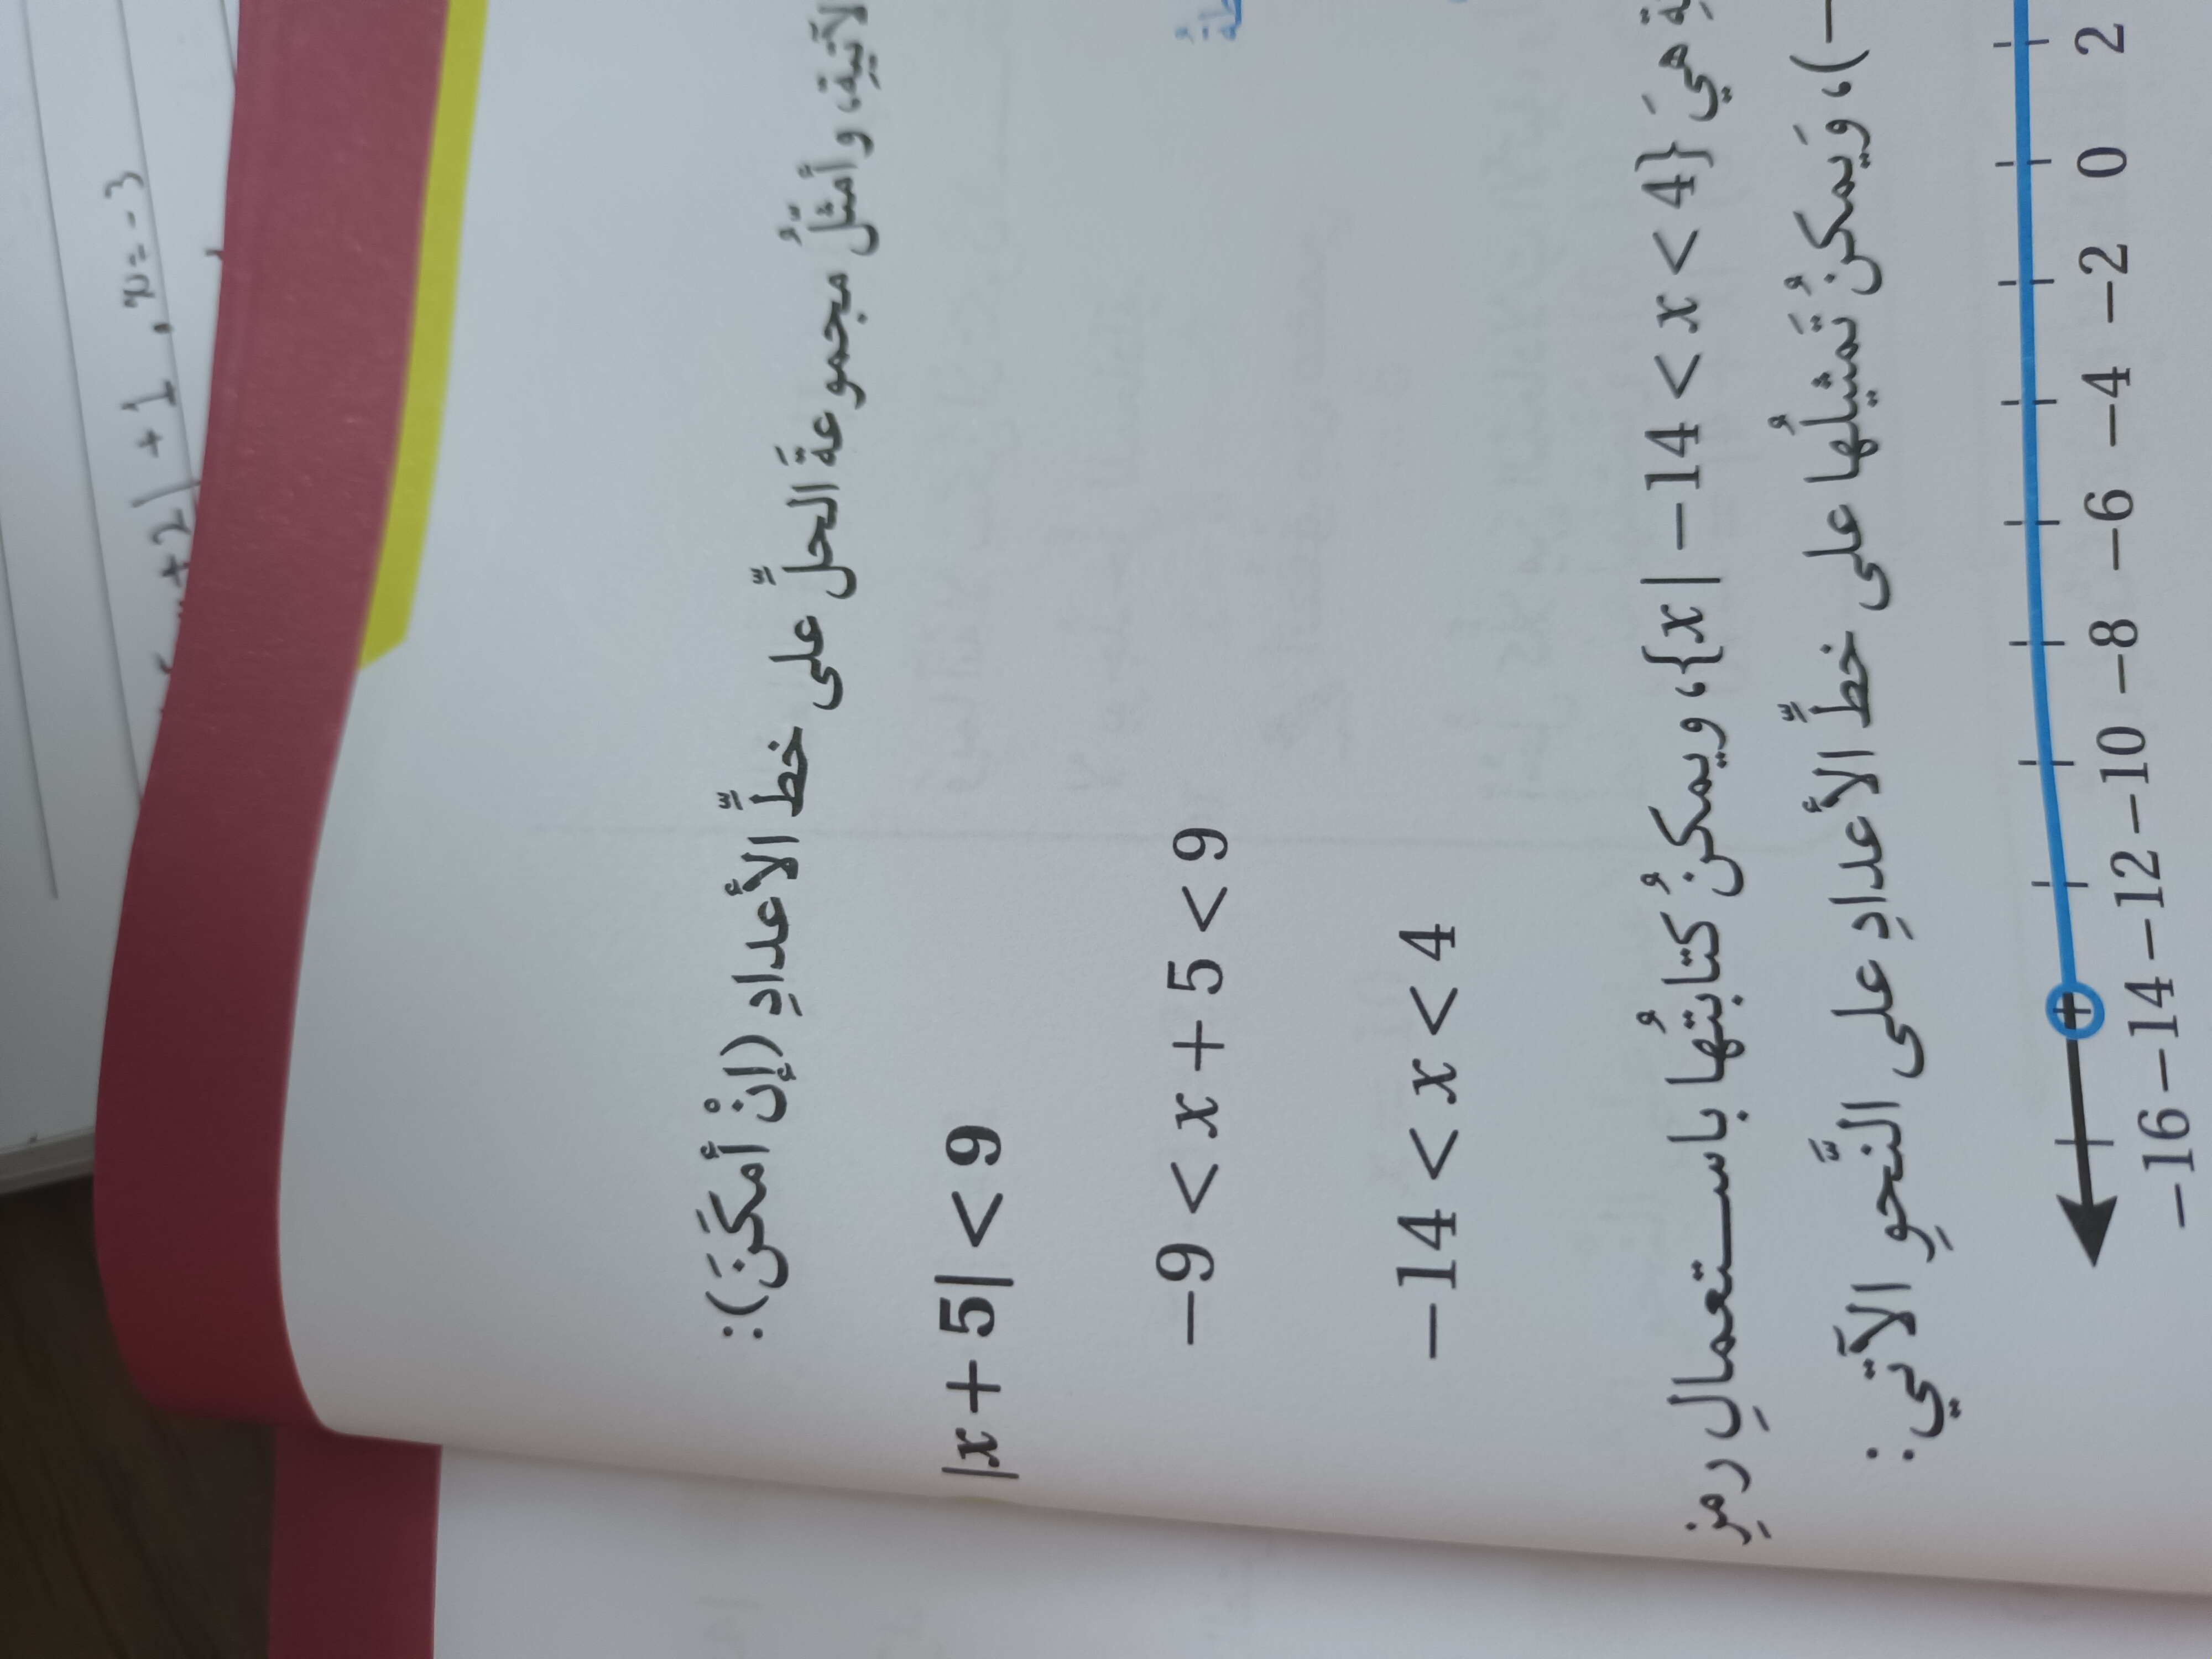 +2| + 1 , x = -3
الآتيةِ، وأمثّلُ مجموعةَ الحلِّ على خطِّ الأعدادِ (إنْ أمكَنَ):
|x + 5| < 9
−9 < x + 5 < 9
−14 < x < 4
هيَ {x | −14 < x < 4}، ويمكنُ كتابتُها باستعمالِ رمزِ
(−، وَيمكنُ تَمثيلُها على خطِّ الأعدادِ على النَّحوِ الآتي:
−16 −14 −12 −10 −8 −6 −4 −2 0 2